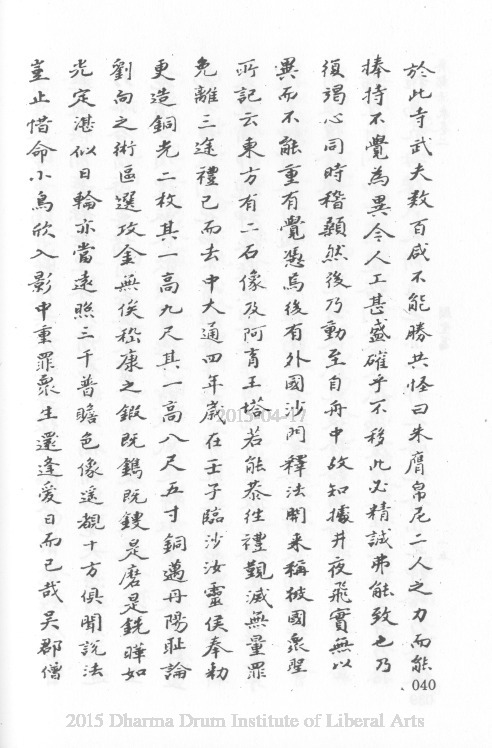 於此寺武夫数百咸不能勝共怪曰朱膺帛尼二人之力而能
捧持不覺為異今人工甚盛確乎不移此必精誠弗能致也乃
復竭心同時稽顙然後乃動至自舟中故知據井夜飛實無以
異而不能重有覺憑焉後有外國沙門釋法開来稱彼國衆聖
所記云東方有二石像及阿育王塔若能恭往禮覲滅無量罪
免離三途禮已而去中大通四年歲在壬子臨沙汝靈侯奉勑
更造銅光二枚其一高九尺其一高八尺五寸銅邁丹陽耻論
劉向之術區選攻金無俟嵇康之鍜既鐫既鏤是磨是銑曄如
光定湛似日輪亦當遠照三千普瞻色像遥覩十方俱聞説法
豈止惜命小鳥欣入影中重罪衆生還逢愛日而已哉吴郡僧
2015-04-17
040
2015 Dharma Drum Institute of Liberal Arts